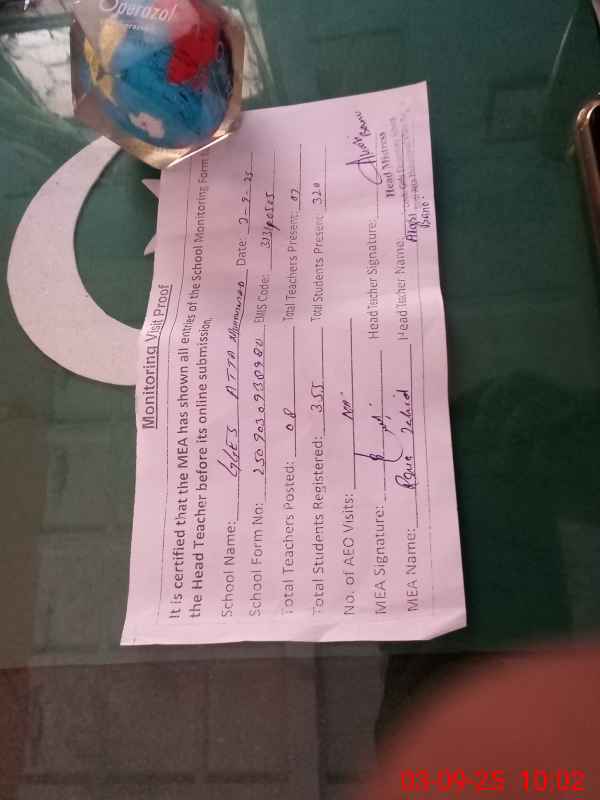 Operazol
Monitoring Visit Proof
It is certified that the MEA has shown all entries of the School Monitoring Form
the Head Teacher before its online submission.
School Name: GGES ATTA Muhammad Date: 3-9-25
School Form No: 2509030930980 EMIS Code:
Total Teachers Posted: 08 Total Teachers Present: 07
Total Students Registered: 355 Total Students Present: 320
No. of AEO Visits:
MEA Signature: Head Teacher Signature:
Head Mistress
MEA Name: Zahid Head Teacher Name:
Bano
03-09-25 10:02